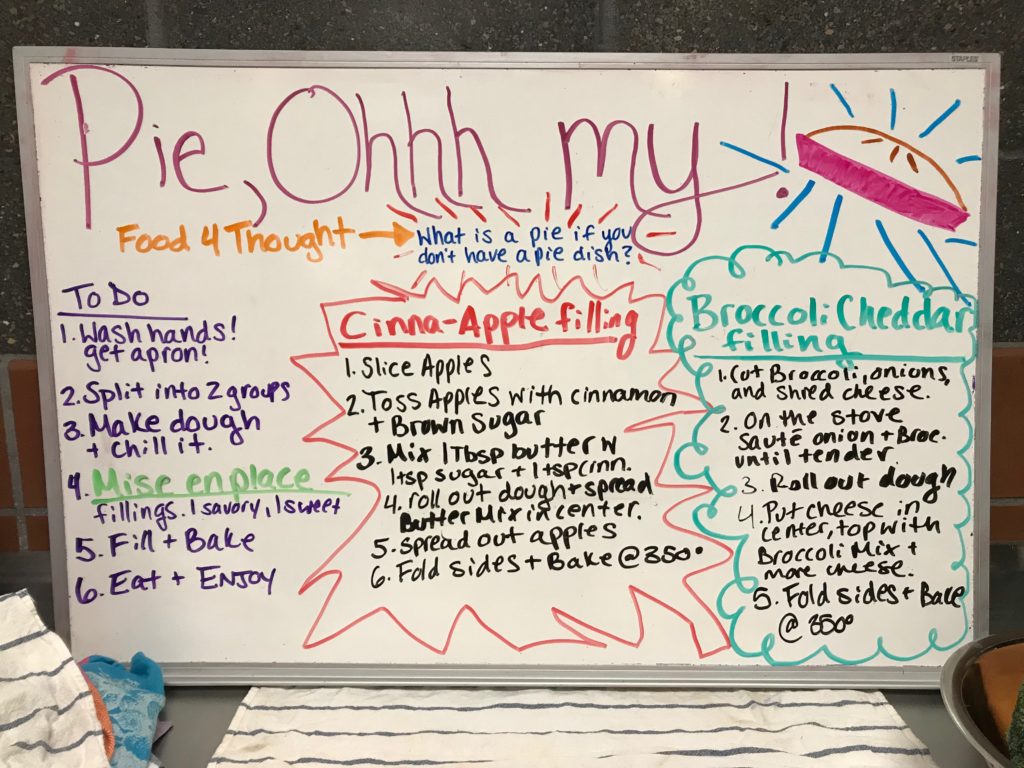 STAPLES
Pie, Ohhh my!
Food 4 Thought
What is a pie if you
don't have a pie dish?
To Do
1. Wash hands!
get apron!
2. Split into 2 groups
3. Make dough
+ chill it.
4. Mise en place
fillings. 1 savory, 1 sweet
5. Fill + Bake
6. Eat + ENJOY
Cinna-Apple filling
1. Slice Apples
2. Toss Apples with cinnamon
+ Brown Sugar
3. Mix 1Tbsp butter w
1tsp sugar + 1tsp cinn.
4. roll out dough + spread
Butter Mix in center.
5. spread out apples
6. Fold sides + Bake @ 350°
Broccoli Cheddar
filling
1. Cut Broccoli, onions,
and shred cheese.
2. On the stove
sauté onion + Broc.
until tender
3. Roll out dough
4. Put cheese in
center, top with
Broccoli Mix +
more cheese.
5. Fold sides + Bake
@ 350°